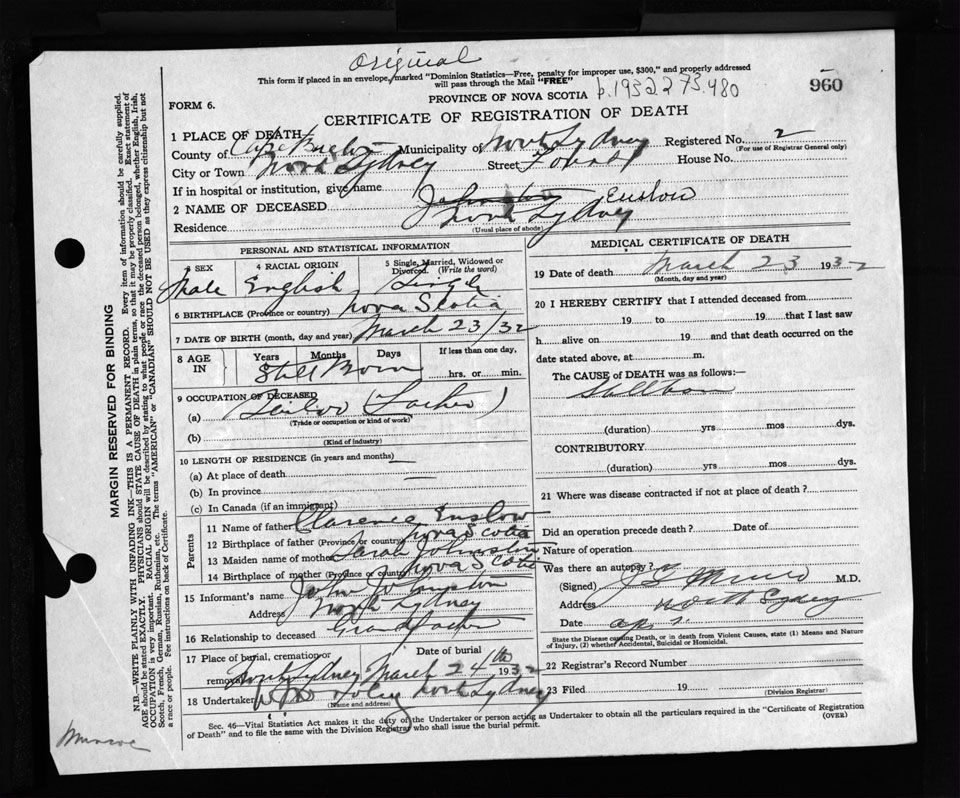 Original
This form if placed in an envelope, marked "Dominion Statistics—Free, penalty for improper use, $300," and properly addressed
will pass through the Mail "FREE"
960
FORM 6.
PROVINCE OF NOVA SCOTIA
CERTIFICATE OF REGISTRATION OF DEATH
1 PLACE OF DEATH—
County of Cape Breton Municipality of North Sydney Registered No. 2
(For use of Registrar General only)
City or Town North Sydney Street House No.
If in hospital or institution, give name
2 NAME OF DECEASED Johnston Enslow
Residence North Sydney
(Usual place of abode)
PERSONAL AND STATISTICAL INFORMATION
3 SEX 4 RACIAL ORIGIN 5 Single, Married, Widowed or Divorced. (Write the word)
Male English Single
6 BIRTHPLACE (Province or country) Nova Scotia
7 DATE OF BIRTH (month, day and year) March 23/32
8 AGE IN Years Months Days If less than one day,
Still Born hrs. or min.
9 OCCUPATION OF DECEASED
(a) (Father)
(Trade or occupation or kind of work)
(b)
(Kind of industry)
10 LENGTH OF RESIDENCE (in years and months) —
(a) At place of death
(b) In province —
(c) In Canada (if an immigrant)
Parents
11 Name of father Clarence Enslow
12 Birthplace of father (Province or country) Nova Scotia
13 Maiden name of mother Sarah Johnston
14 Birthplace of mother (Province or country) Nova Scotia
15 Informant's name John Johnston
Address North Sydney
16 Relationship to deceased Grandfather
17 Place of burial, cremation or removal Date of burial
North Sydney March 24th 1932
18 Undertaker North Sydney
(Name and address)
MEDICAL CERTIFICATE OF DEATH
19 Date of death March 23 1932
(Month, day and year)
20 I HEREBY CERTIFY that I attended deceased from
19 to 19 that I last saw
h alive on 19 and that death occurred on the
date stated above, at m.
The CAUSE of DEATH was as follows:—
Stillborn
(duration) yrs mos dys.
CONTRIBUTORY
(duration) yrs mos dys.
21 Where was disease contracted if not at place of death?
Did an operation precede death? Date of
Nature of operation
Was there an autopsy?
(Signed) M.D.
Address North Sydney
Date
State the Disease causing Death, or in death from Violent Causes, state (1) Means and Nature
of Injury, (2) whether Accidental, Suicidal or Homicidal.
22 Registrar's Record Number
23 Filed 19
(Division Registrar)
Sec. 46—Vital Statistics Act makes it the duty of the Undertaker or person acting as Undertaker to obtain all the particulars required in the "Certificate of Registration
of Death" and to file the same with the Division Registrar who shall issue the burial permit.
(OVER)
MARGIN RESERVED FOR BINDING
N.B.—WRITE PLAINLY WITH UNFADING INK—THIS IS A PERMANENT RECORD. Every item of information should be carefully supplied.
AGE should be stated EXACTLY. PHYSICIANS should STATE CAUSE OF DEATH in plain terms, so that it may be properly classified. Exact statement of
OCCUPATION is very important. RACIAL ORIGIN will be described by stating to what people or race the deceased person belonged, whether English, Irish,
Scotch, French, German, Russian, Ruthenian, etc. The terms "AMERICAN" or "CANADIAN" SHOULD NOT BE USED as they express citizenship but not
a race or people. Fee instructions on back of Certificate.
Munroe